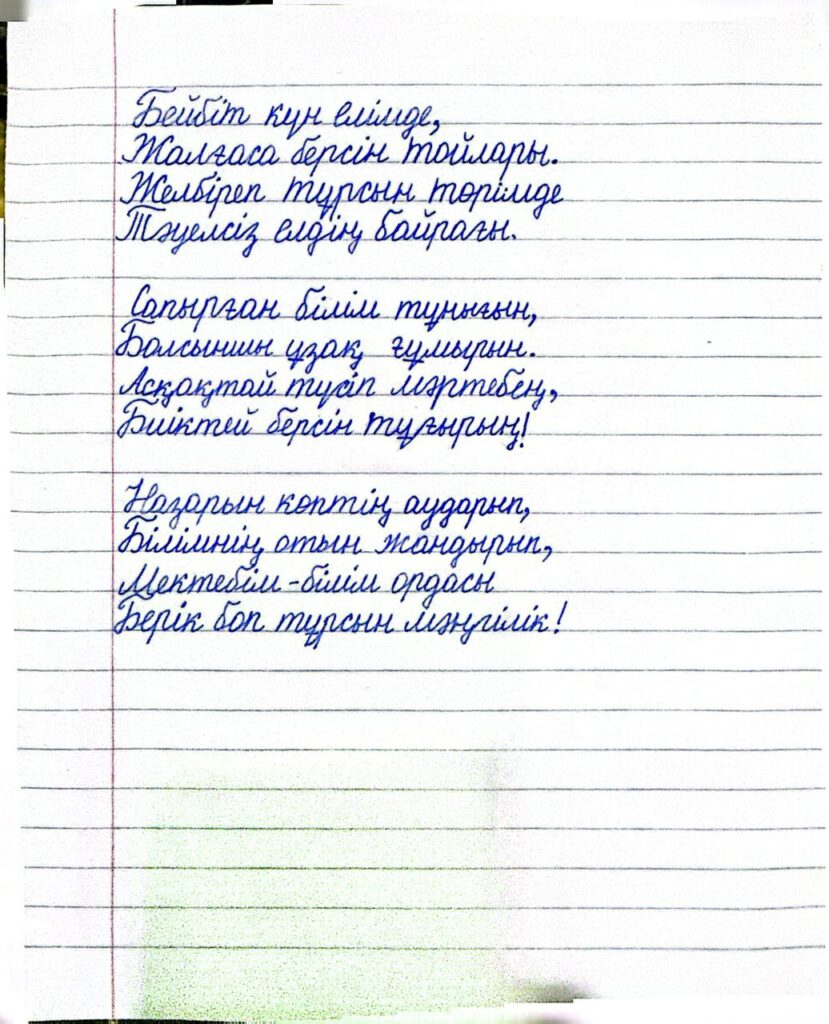 Бейбіт күн елімде,
Жалғаса берсін тойлары.
Желбіреп тұрсын төрімде
Тәуелсіз елдің байрағы.
Сапырған білім тұнығын,
Болсыншы ұзақ ғұмырың.
Асқақтай түсіп мәртебең,
Биіктей берсін тұғырың!
Назарын көптің аударып,
Білімнің отын жандырып,
Мектебім-білім ордасы
Берік боп тұрсын мәңгілік!